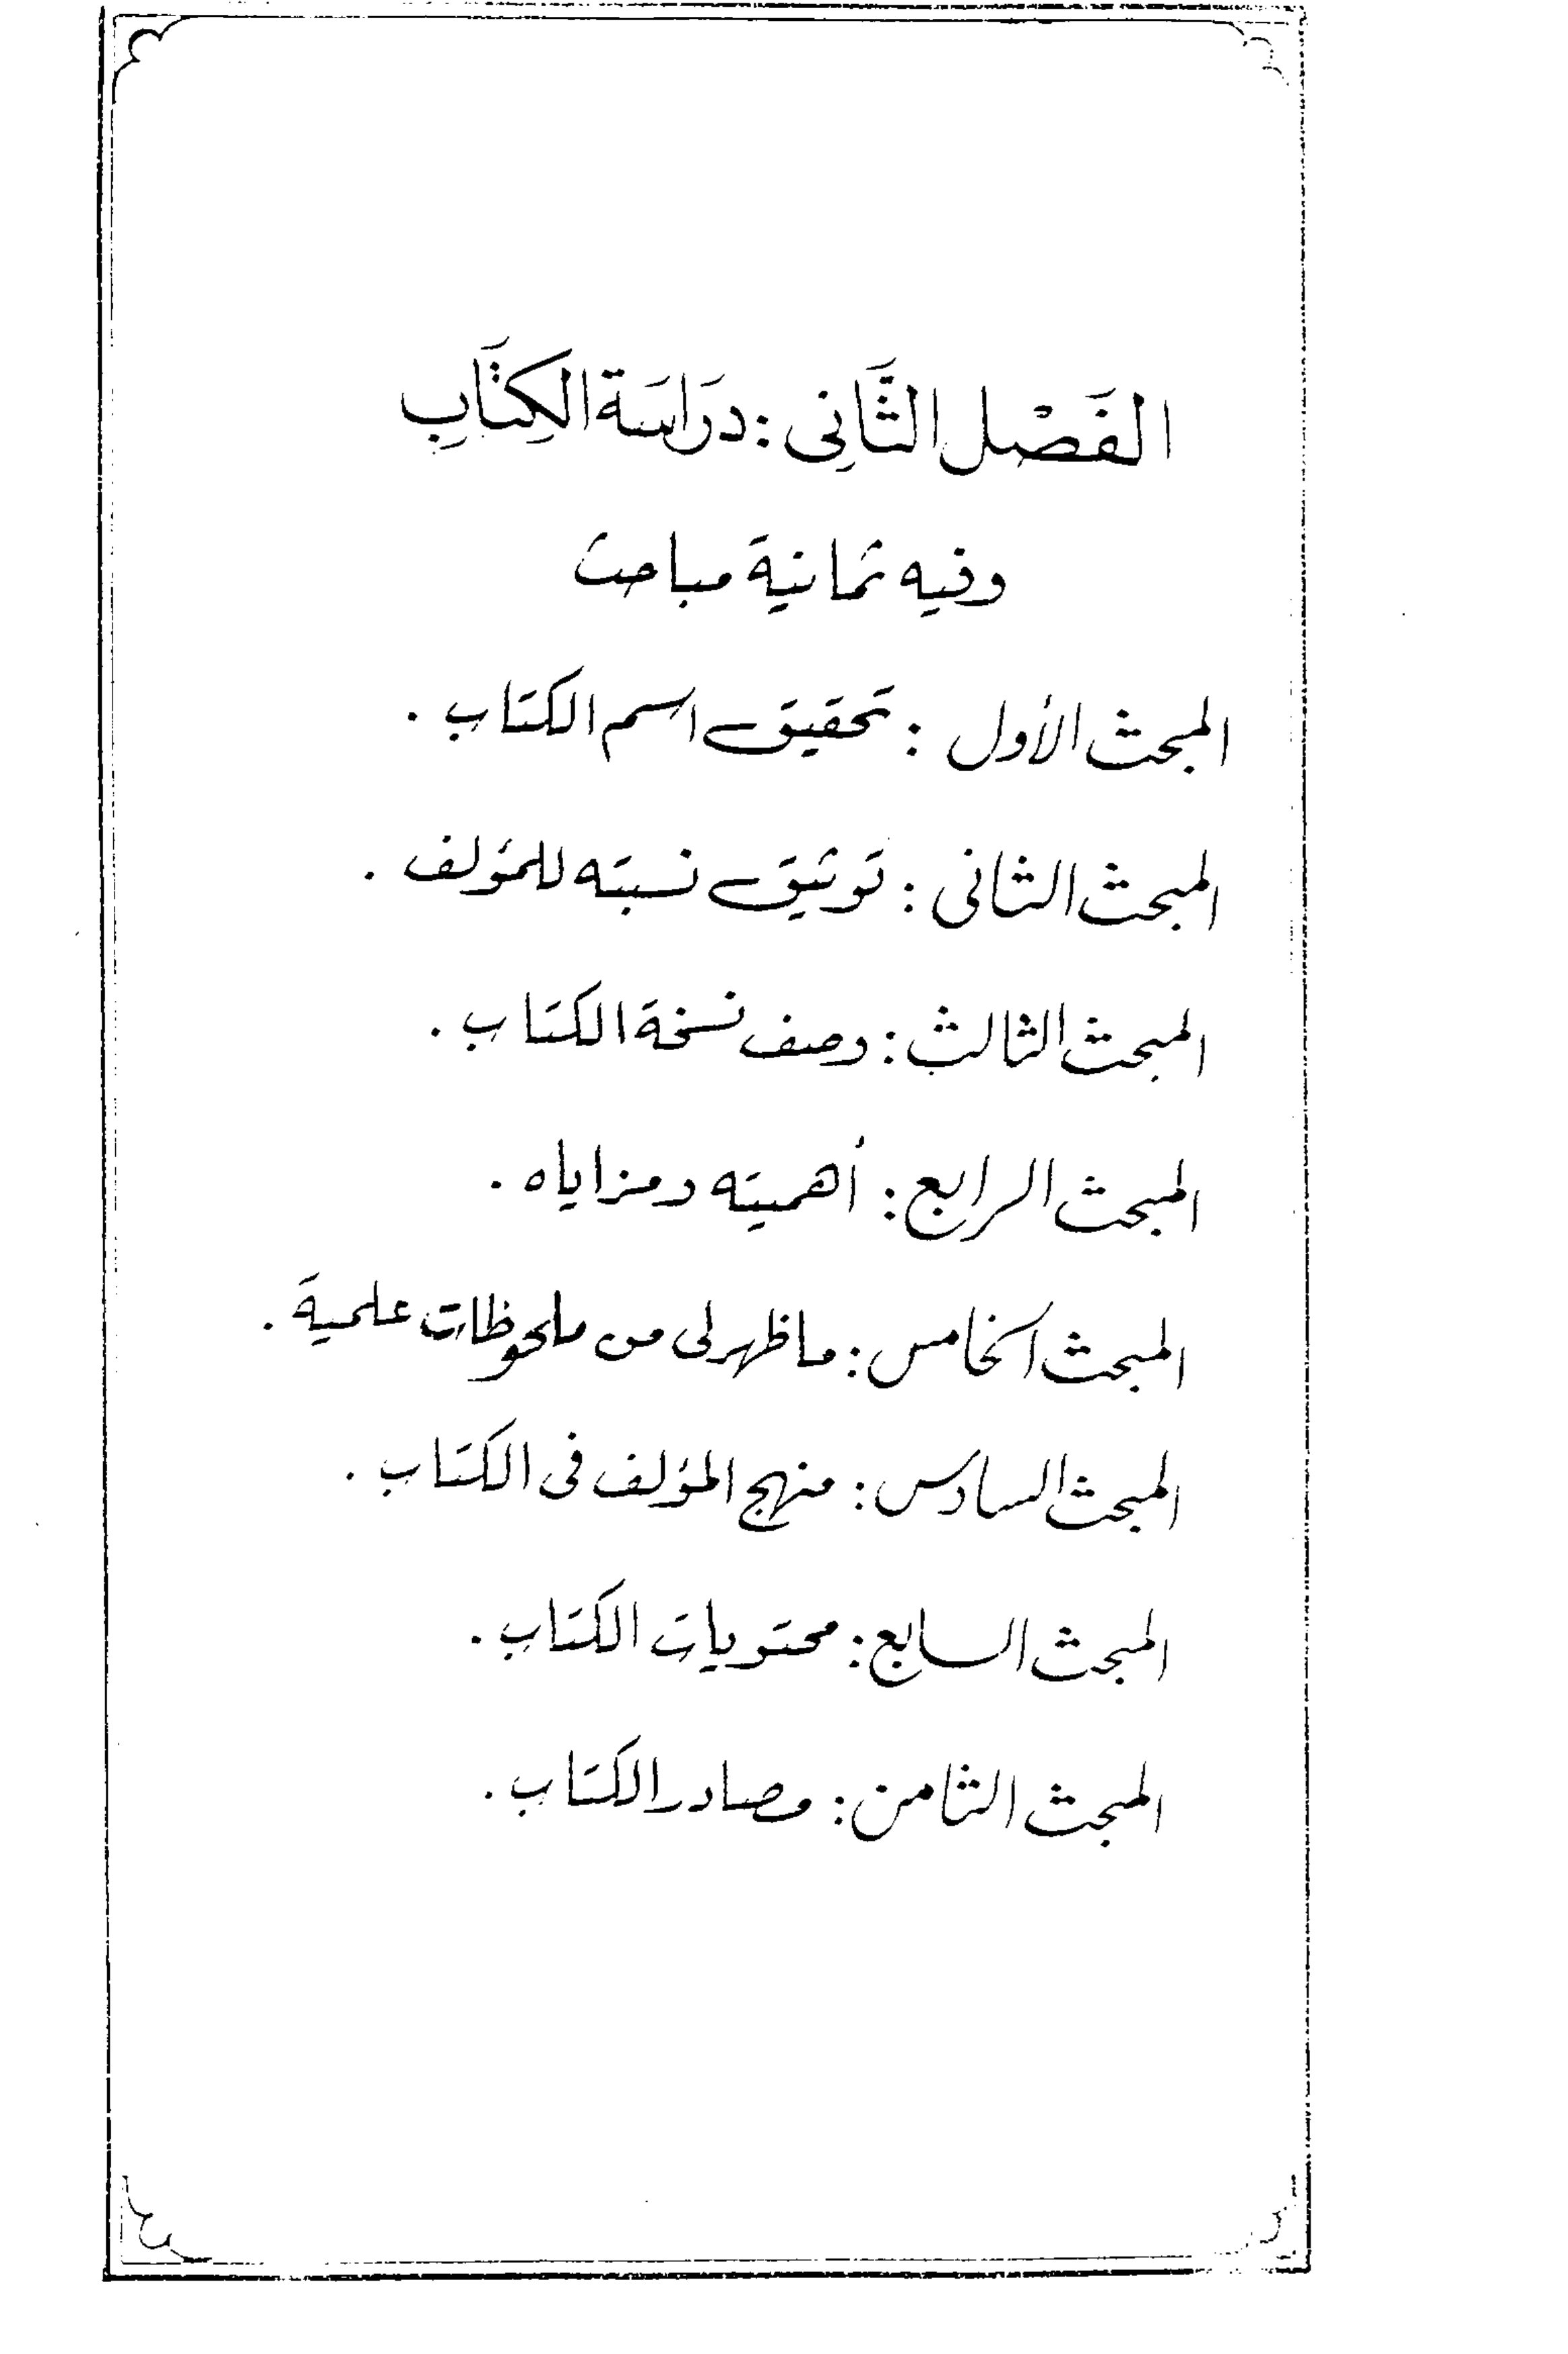 الفَصْل الثَّانِى : درَاسَة الكِتَابِ
وفيه ثمانية مباحث
المبحث الأول : تحقيق اسم الكتاب .
المبحث الثانى : توثيق نسبته للمؤلف .
المبحث الثالث : وصف نسخة الكتاب .
المبحث الرابع : أهميته ومزاياه .
المبحث الخامس : ما ظهر لى من ملحوظات علمية .
المبحث السادس : منهج المؤلف فى الكتاب .
المبحث السابع : محتويات الكتاب .
المبحث الثامن : مصادر الكتاب .